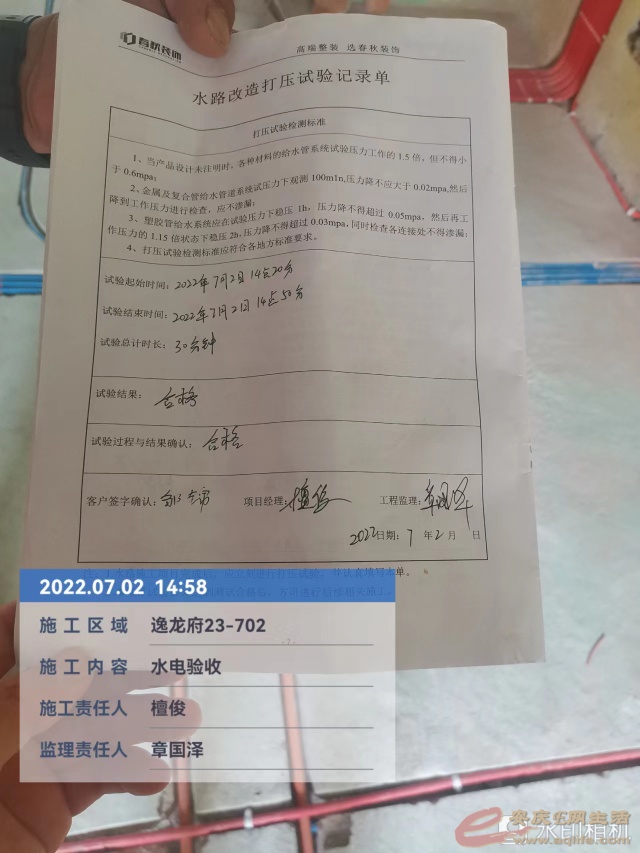 春秋装饰
高端整装 选春秋装饰
水路改造打压试验记录单
打压试验检测标准
1、当产品设计未注明时，各种材料的给水管系统试验压力工作的1.5倍，但不得小
于0.6mpa；
2、金属及复合管给水管道系统试压力下观测100m1n,压力降不应大于0.02mpa,然后
降到工作压力进行检查，应不渗漏；
3、塑胶管给水系统应在试验压力下稳压1h，压力降不得超过0.05mpa，然后再工
作压力的1.15倍状态下稳压2h,压力降不得超过0.03mpa,同时检查各连接处不得渗漏；
4、打压试验检测标准应符合各地方标准要求。
试验起始时间：2022年7月2日14点20分
试验结束时间：2022年7月2日14点50分
试验总计时长：30分钟
试验结果：合格
试验过程与结果确认：合格
客户签字确认： 项目经理：檀俊 工程监理：章国泽
2022日期：7 年2月 日
2022.07.02 14:58
施工区域 逸龙府23-702
施工内容 水电验收
施工责任人 檀俊
监理责任人 章国泽
安庆E网生活
水印相机
www.aqlife.com